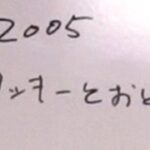 2005
ッキーとお